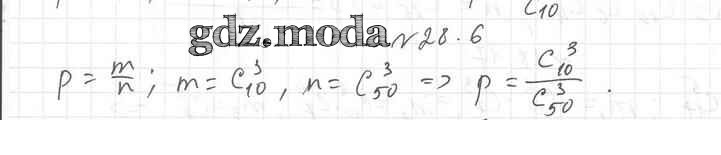 C10
gdz.moda №28.6
p = m/n ; m = C₁₀³ , n = C₅₀³ => p = C₁₀³/C₅₀³ .